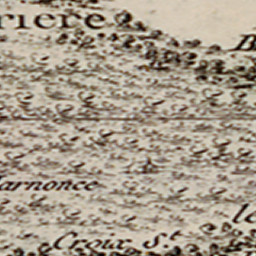 riere
B
arnonce
le
Croix S.t